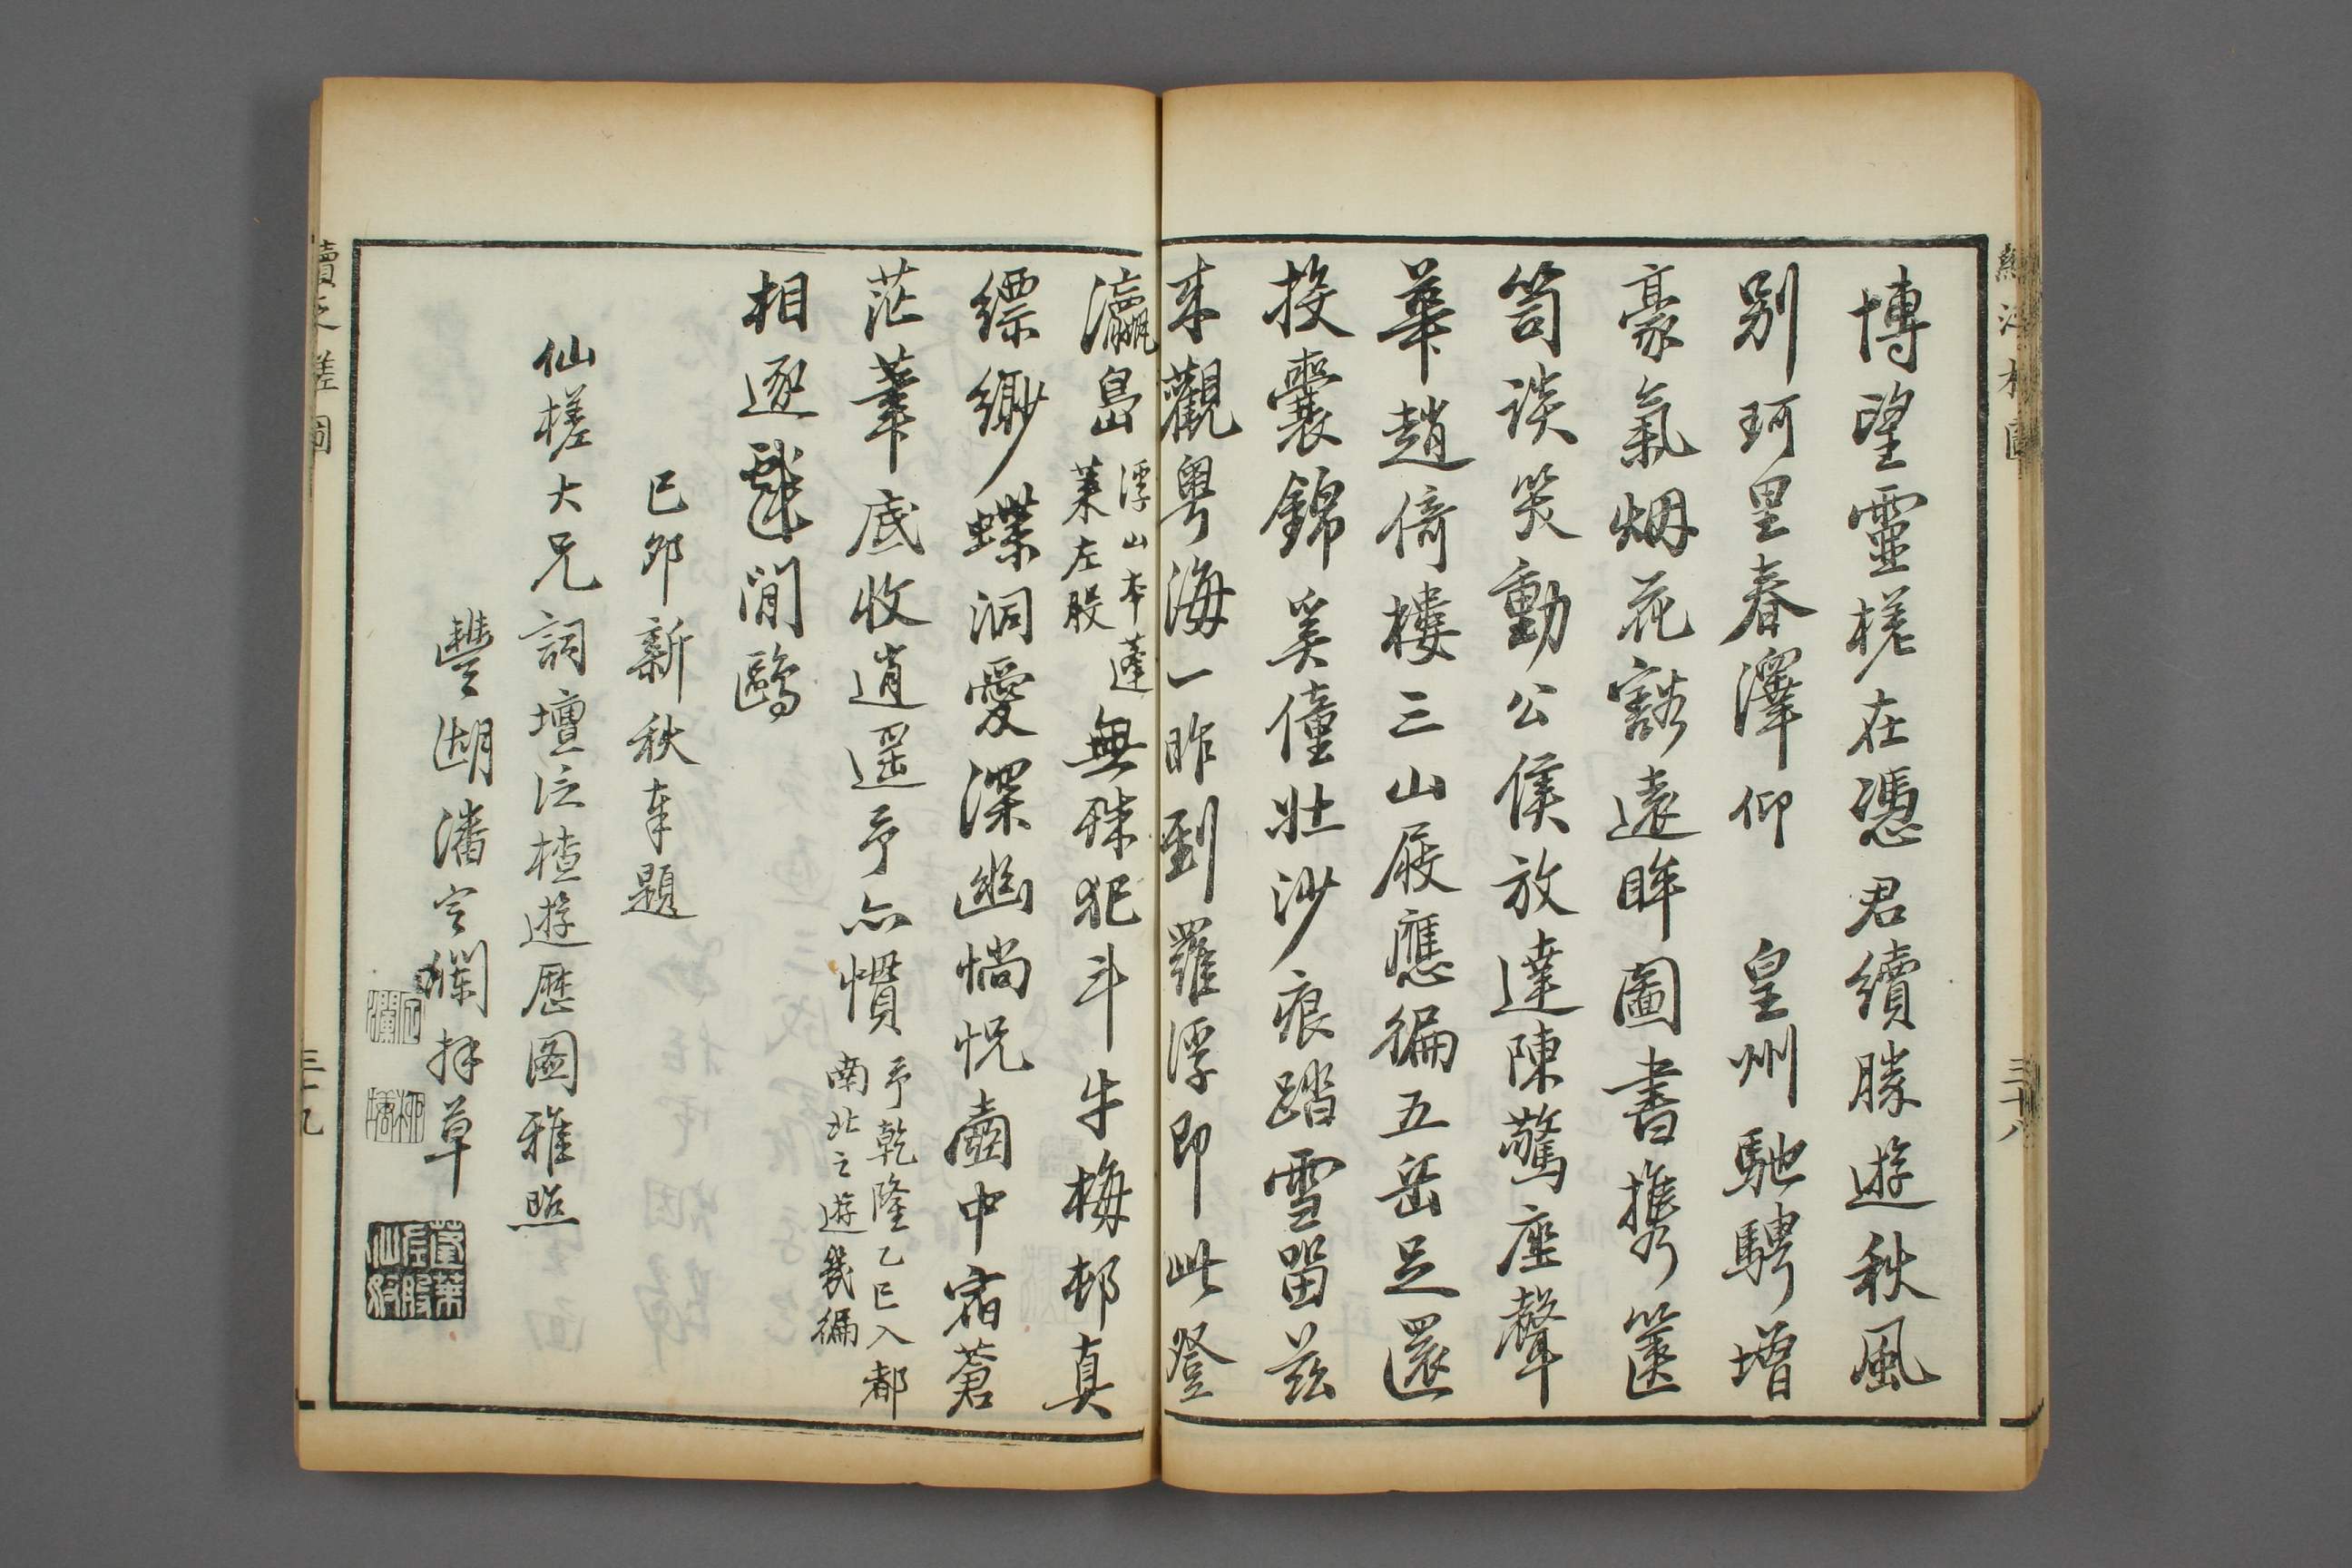 博望靈槎在憑君續勝遊秋風
別珂里春澤仰　皇州馳騁增
豪氣烟花豁遠眸圖書攜篋
笥談笑動公侯放達陳驚座聲
華趙倚樓三山屐應徧五岳足還
投囊錦奚僮壯沙痕踏雪留茲
來觀粵海一昨到羅浮即此登
瀛島
浮山本蓬
萊左股
無殊犯斗牛梅邨真
縹緲蝶洞愛深幽惝怳壺中宿蒼
茫葦底收逍遥予亦慣
予乾隆乙巳入都
南北之遊幾徧
相逐
閒鷗
己卯新秋奉題
仙槎大兄詞壇泛楂遊歷圖雅照
豐湖潘定瀾拜草
定瀾
蓬萊左股仙
續泛槎圖
三十九
三十八